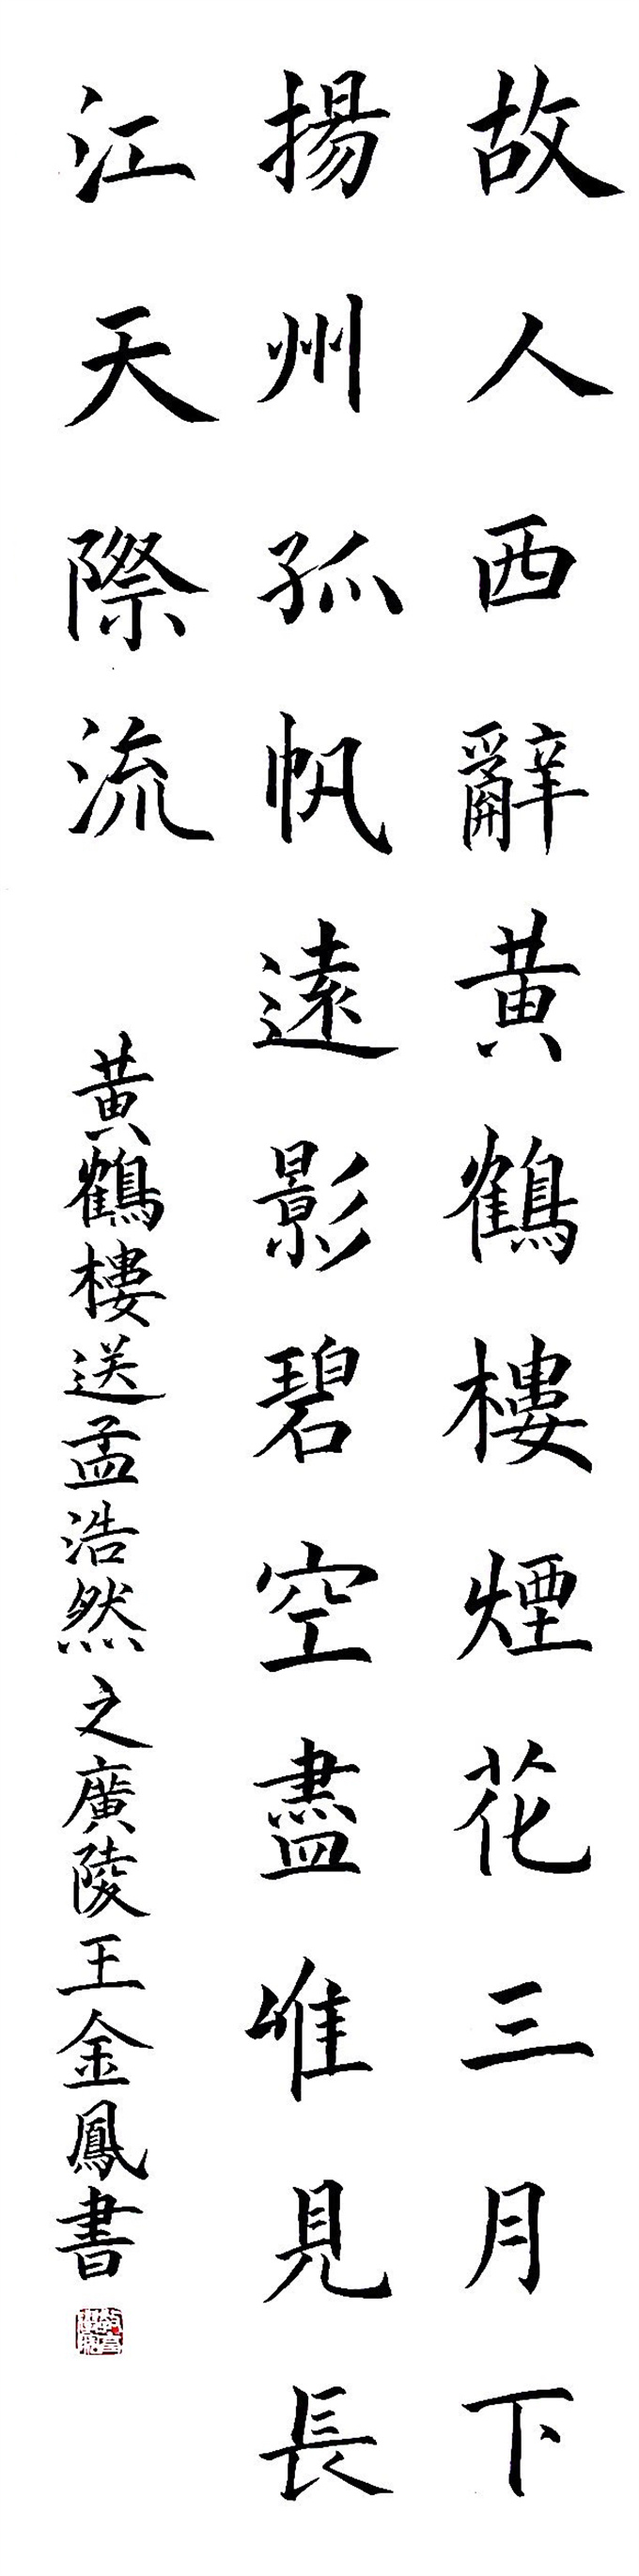 故人西辭黄鶴樓煙花三月下
揚州孤帆遠影碧空盡唯見長
江天際流
黄鶴樓送孟浩然之廣陵王金鳳書